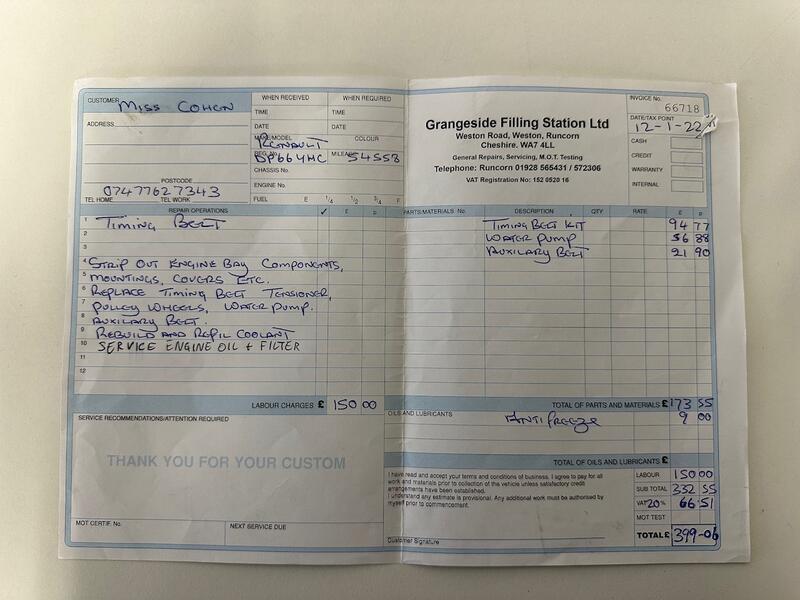 CUSTOMER Miss Cohen
ADDRESS
POSTCODE
07477627343
TEL HOME TEL WORK
WHEN RECEIVED WHEN REQUIRED
TIME TIME
DATE DATE
MAKE/MODEL COLOUR
RENAULT
REG. No. DP66 MILEAGE 54558
CHASSIS No.
ENGINE No.
FUEL E 1/4 1/2 3/4 F
Grangeside Filling Station Ltd
Weston Road, Weston, Runcorn
Cheshire. WA7 4LL
General Repairs, Servicing, M.O.T. Testing
Telephone: Runcorn 01928 565431 / 572306
VAT Registration No: 152 0520 16
INVOICE No. 66718
DATE/TAX POINT
12-1-22
CASH
CREDIT
WARRANTY
INTERNAL
REPAIR OPERATIONS ✓ £ p
1 TIMING BELT
2
3
4 STRIP OUT ENGINE BAY COMPONENTS,
5 MOUNTINGS, COVERS ETC.
6 REPLACE TIMING BELT TENSIONER,
7 PULLEY WHEELS, WATER PUMP.
8 AUXILARY BELT.
9 REBUILD AND REFIL COOLANT
10 SERVICE ENGINE OIL + FILTER
11
12
LABOUR CHARGES £ 150 00
PARTS/MATERIALS No. DESCRIPTION QTY RATE £ p
TIMING BELT KIT 94 77
WATER PUMP 56 88
AUXILARY BELT 21 90
TOTAL OF PARTS AND MATERIALS £ 173 55
OILS AND LUBRICANTS
Antifreeze 9 00
TOTAL OF OILS AND LUBRICANTS £
SERVICE RECOMMENDATIONS/ATTENTION REQUIRED
THANK YOU FOR YOUR CUSTOM
MOT CERTIF. No. NEXT SERVICE DUE
I have read and accept your terms and conditions of business. I agree to pay for all
work and materials prior to collection of the vehicle unless satisfactory credit
arrangements have been established.
I understand any estimate is provisional. Any additional work must be authorised by
myself prior to commencement.
Customer Signature
LABOUR 150 00
SUB TOTAL 332 55
VAT 20% 66 51
MOT TEST
TOTAL £ 399-06